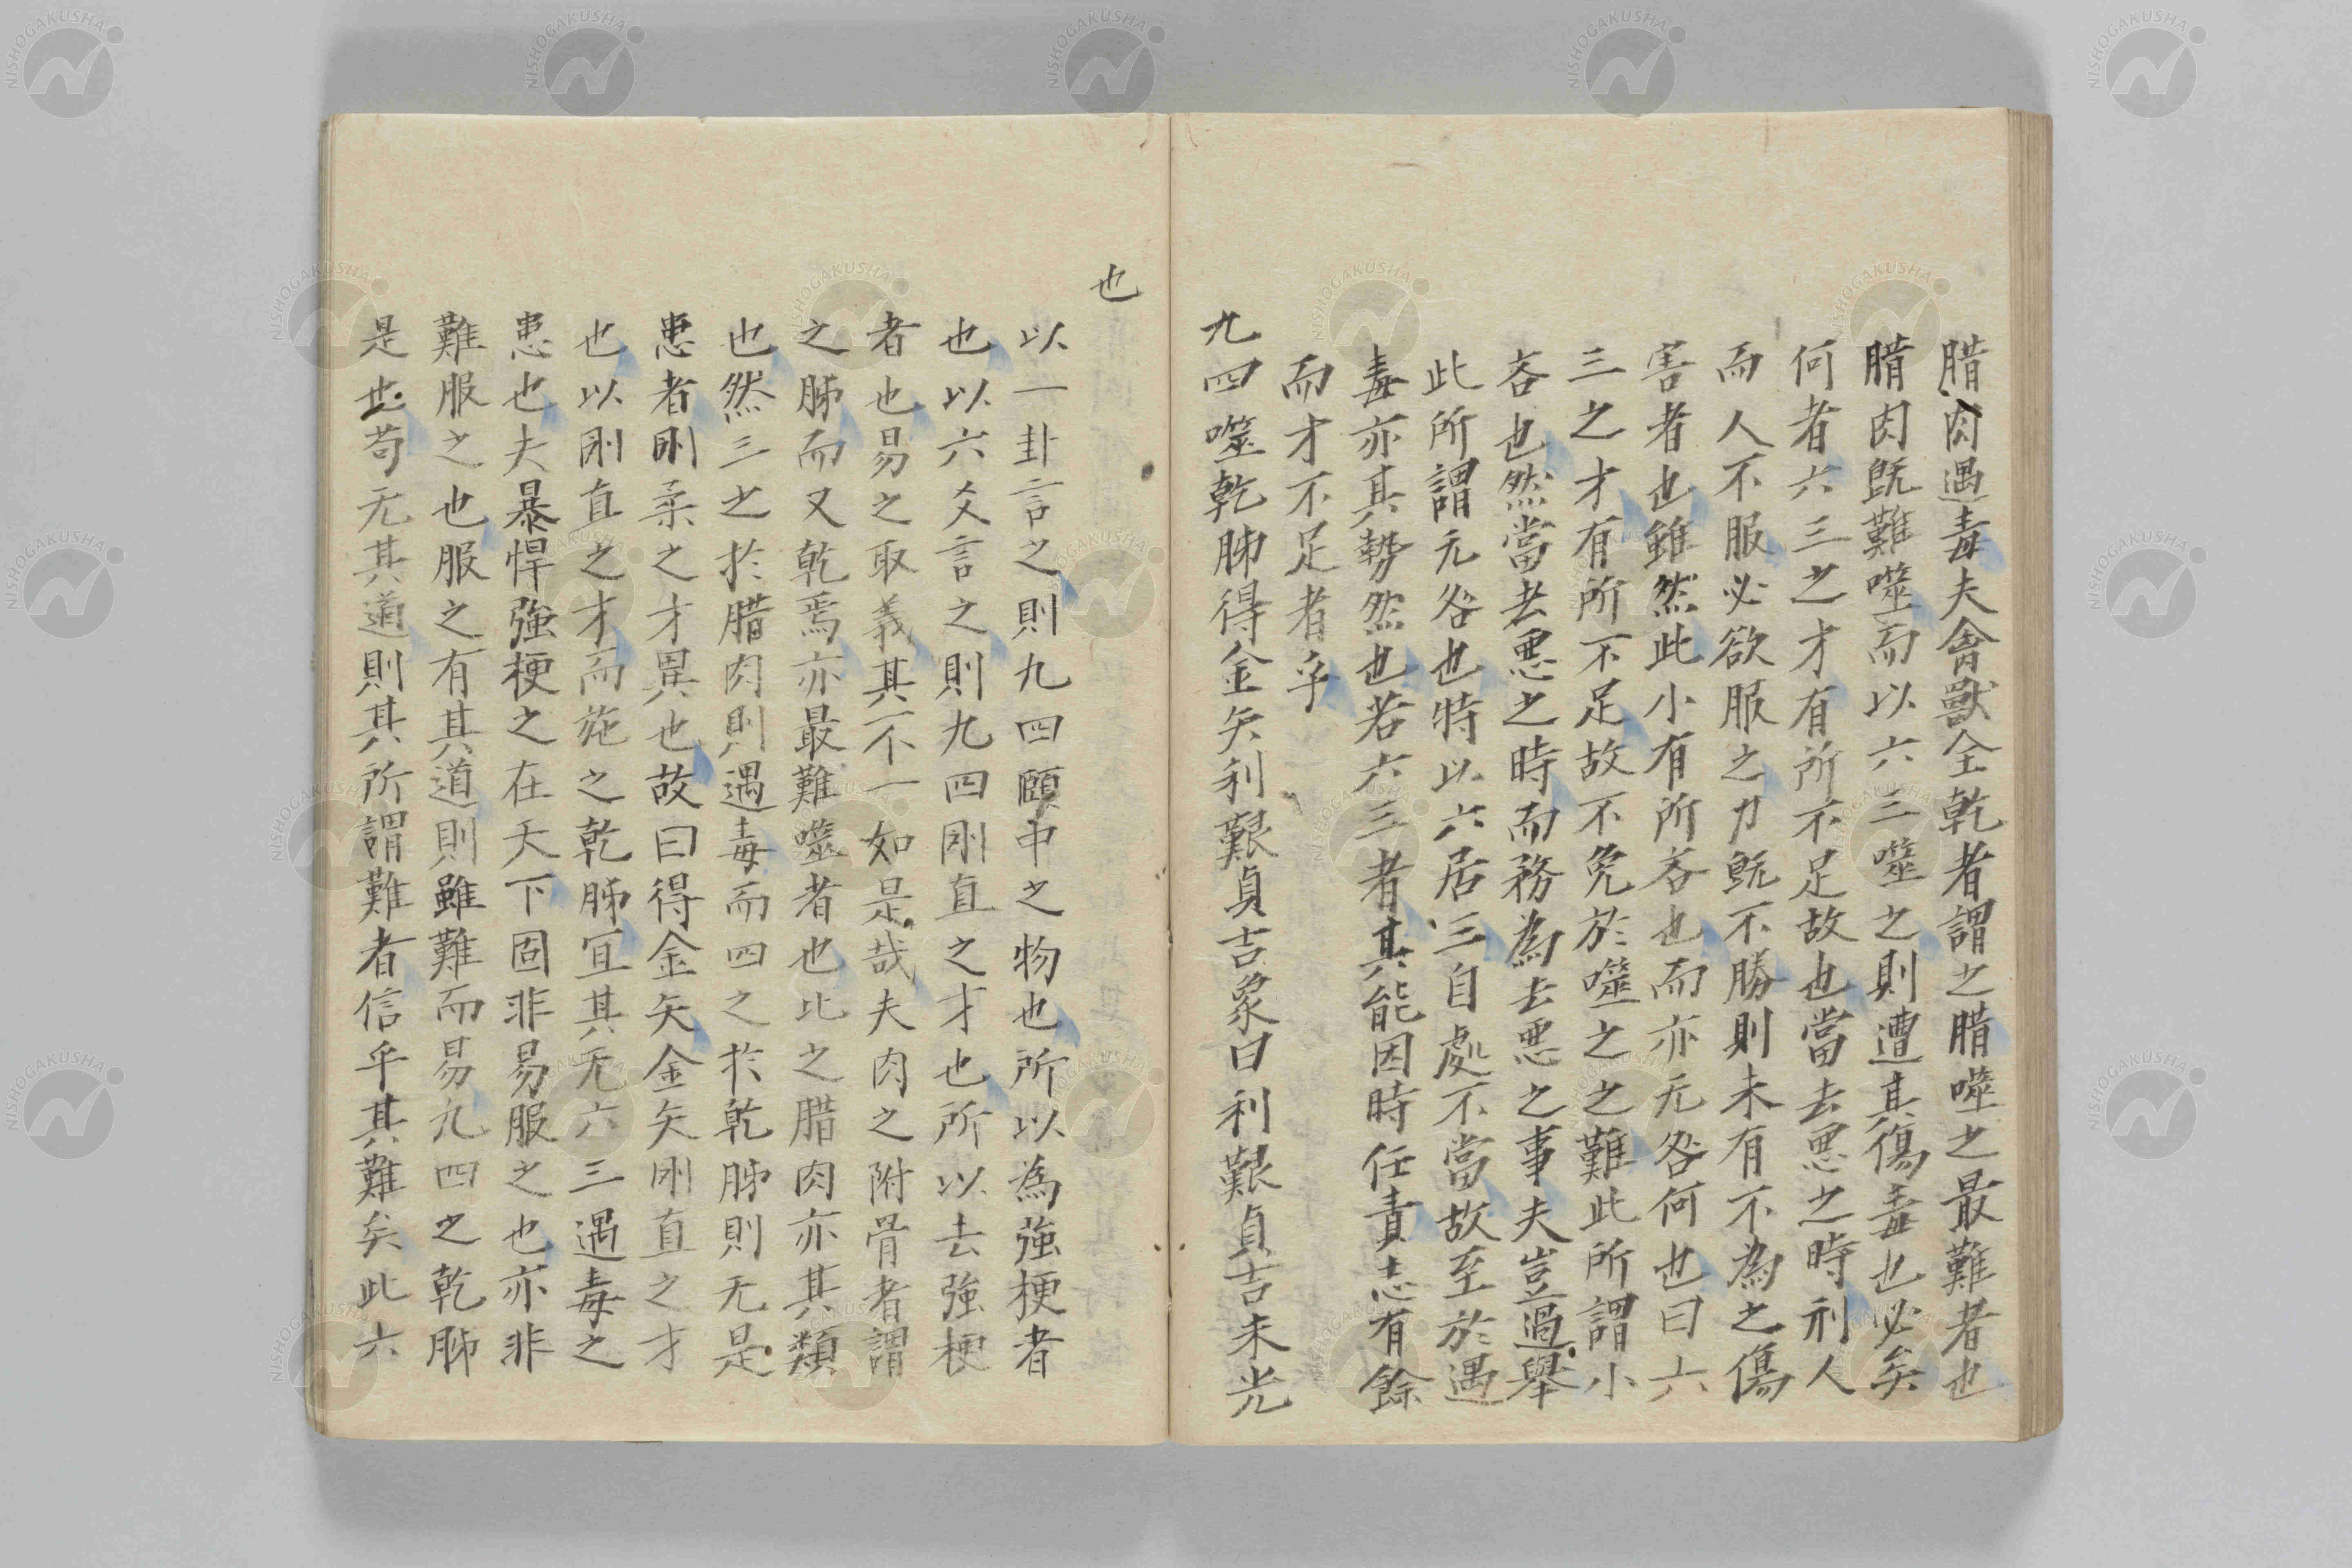 腊肉遇毒夫禽獸全乾者謂之腊噬之最難者也
腊肉既難噬而以六三噬之則遭其傷毒也必矣
何者六三之才有所不足故也當去悪之時刑人
而人不服必欲服之力既不勝則未有不為之傷
害者也雖然此小有所吝也而亦无咎何也曰六
三之才有所不足故不免於噬之之難此所謂小
吝也然當去悪之時而務為去悪之事夫豈過舉
此所謂无咎也特以六居三自處不當故至於遇
毒亦其勢然也若六三者其能因時任責志有餘
而才不足者乎
九四噬乾胏得金矢利艱貞吉象曰利艱貞吉未光
也
以一卦言之則九四頤中之物也所以為強梗者
也以六爻言之則九四剛直之才也所以去強梗
者也易之取義其不一如是哉夫肉之附骨者謂
之胏而又乾焉亦最難噬者也比之腊肉亦其類
也然三之於腊肉則遇毒而四之於乾胏則无是
患者剛柔之才異也故曰得金矢金矢剛直之才
也以剛直之才而施之乾胏宜其无六三遇毒之
患也夫暴悍強梗之在天下固非易服之也亦非
難服之也服之有其道則雖難而易九四之乾胏
是也苟无其道則其所謂難者信乎其難矣此六
NISHOGAKUSHA